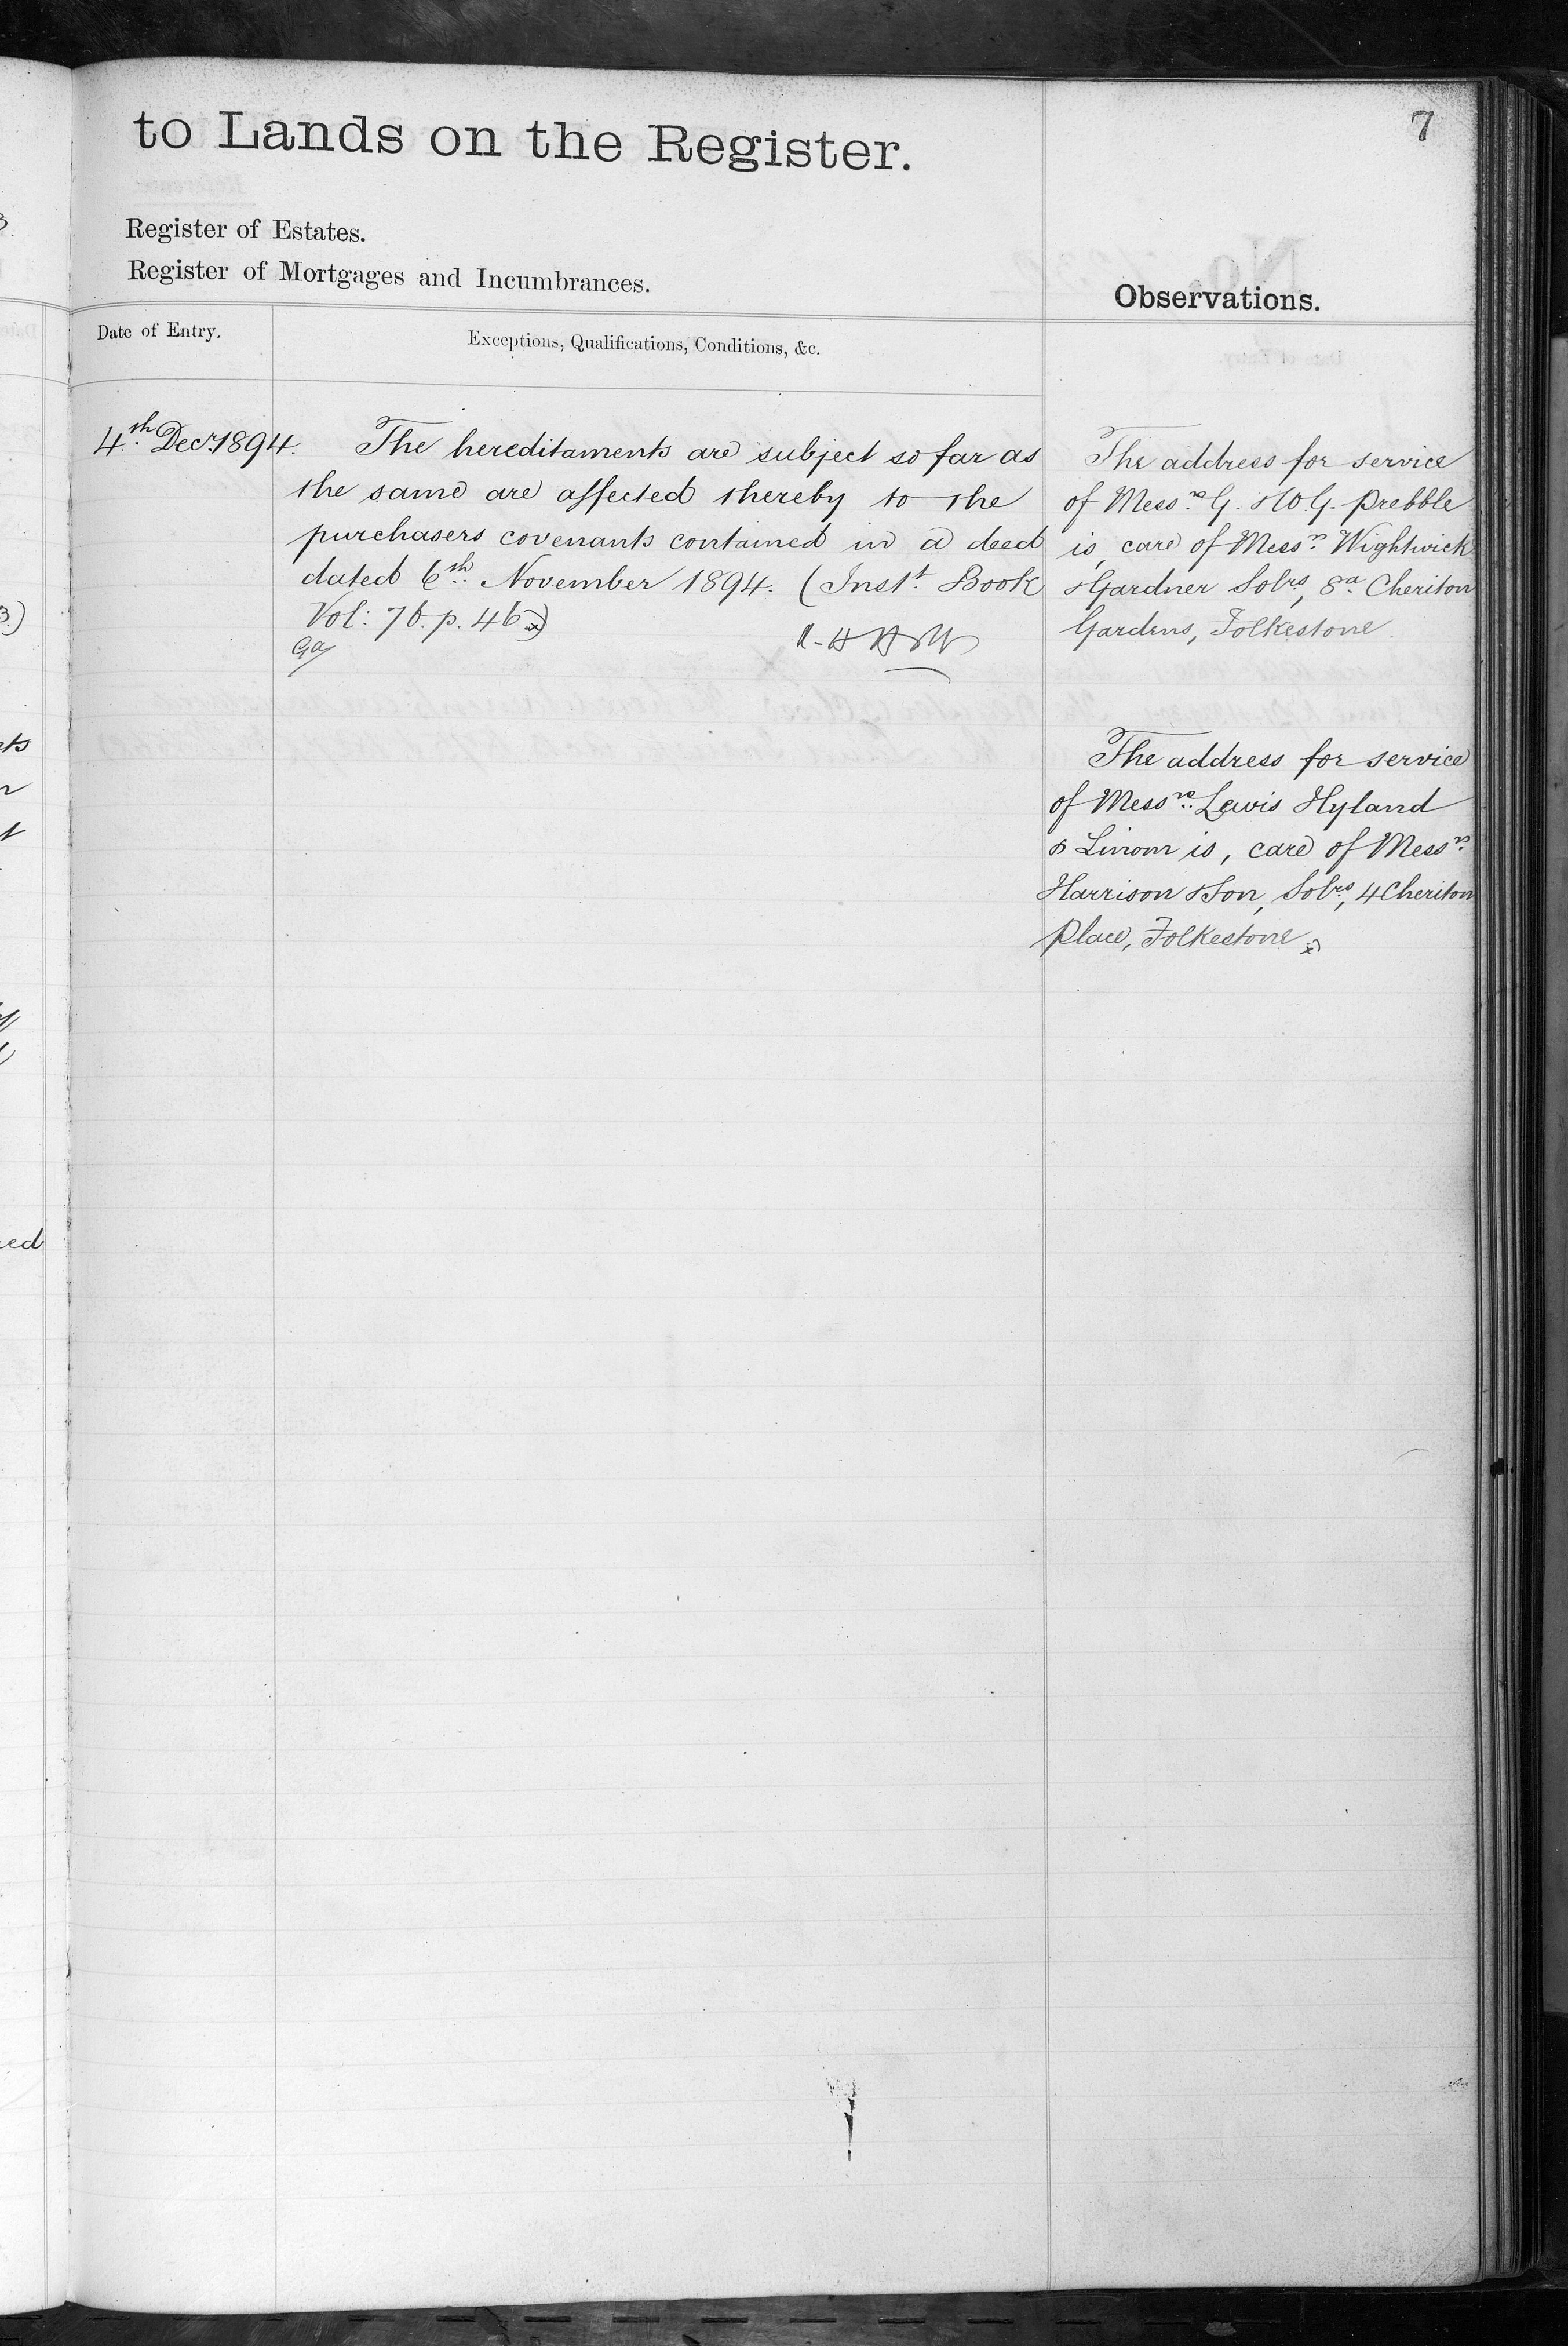 7
to Lands on the Register.
Register of Estates.
Register of Mortgages and Incumbrances.
Observations.
Date of Entry.
Exceptions, Qualifications, Conditions, &c.
4th Decr 1894.
The hereditaments are subject so far as
the same are affected thereby to the
purchasers covenants contained in a deed
dated 6th November 1894. (Instt Book
Vol: 76. p. 46)
The address for service
of Messrs G. & W. G. Prebble
is, care of Messrs Wightwick
& Gardner Solrs, 8a Cheriton
Gardens, Folkestone.
The address for service
of Messrs Lewis Hyland
& Linom is, care of Messrs
Harrison & Son, Solrs, 4 Cheriton
Place, Folkestone